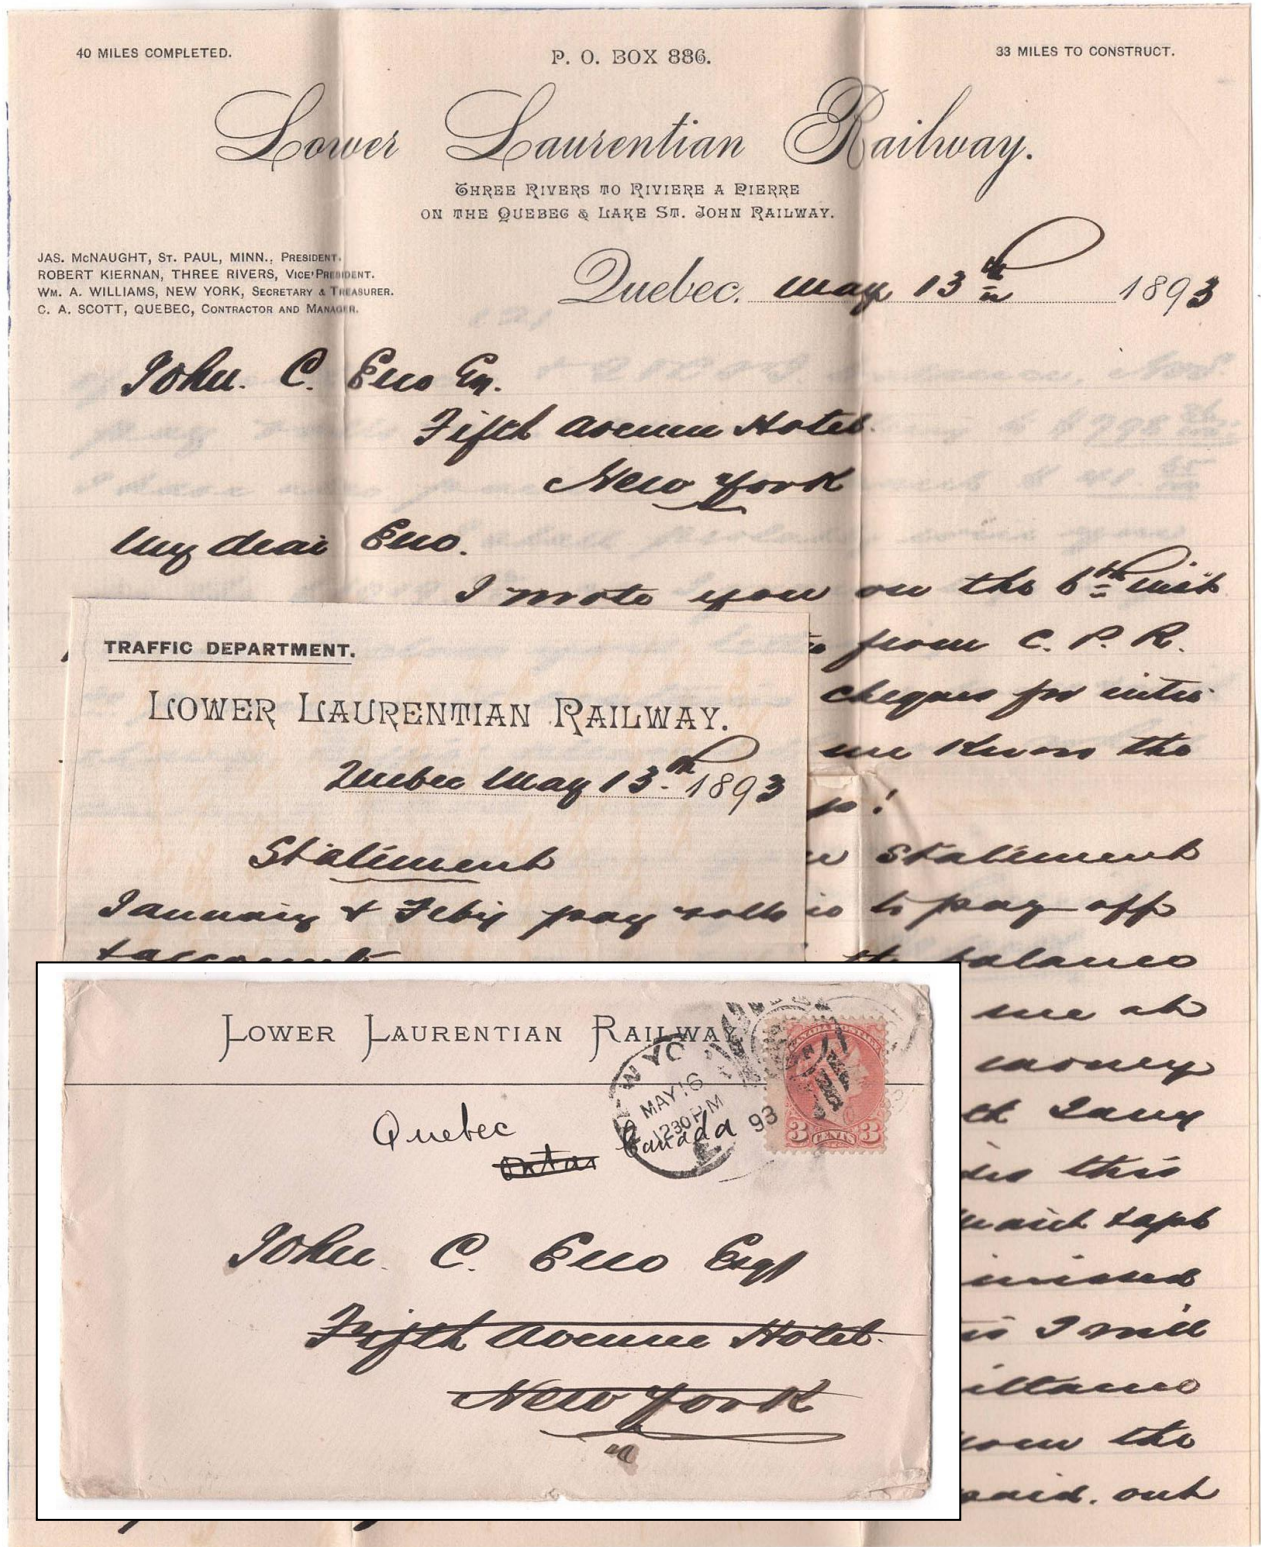 40 MILES COMPLETED.
P. O. BOX 886.
33 MILES TO CONSTRUCT.
Lower Laurentian Railway.
THREE RIVERS TO RIVIERE A PIERRE
ON THE QUEBEC & LAKE ST. JOHN RAILWAY.
JAS. McNAUGHT, ST. PAUL, MINN., PRESIDENT.
ROBERT KIERNAN, THREE RIVERS, VICE PRESIDENT.
WM. A. WILLIAMS, NEW YORK, SECRETARY & TREASURER.
C. A. SCOTT, QUEBEC, CONTRACTOR AND MANAGER.
Quebec, May 13th 1893
John. C. Eno Esq.
Fifth Avenue Hotel.
New York
My dear Eno.
I wrote you on the 6th inst
from C. P. R.
cheques for
me know the
statement
to pay off
the balance
me at
money
this
missed
I will
the
paid. out
TRAFFIC DEPARTMENT.
LOWER LAURENTIAN RAILWAY.
Quebec May 13th 1893
Statement
January & Feby pay rolls
& accounts
LOWER LAURENTIAN RAILWAY
NEW YO
MAY 16
1230PM
93
CANADA POSTAGE
3 CENTS 3
Quebec
Canada
John. C. Eno Esqr
Fifth Avenue Hotel.
New York